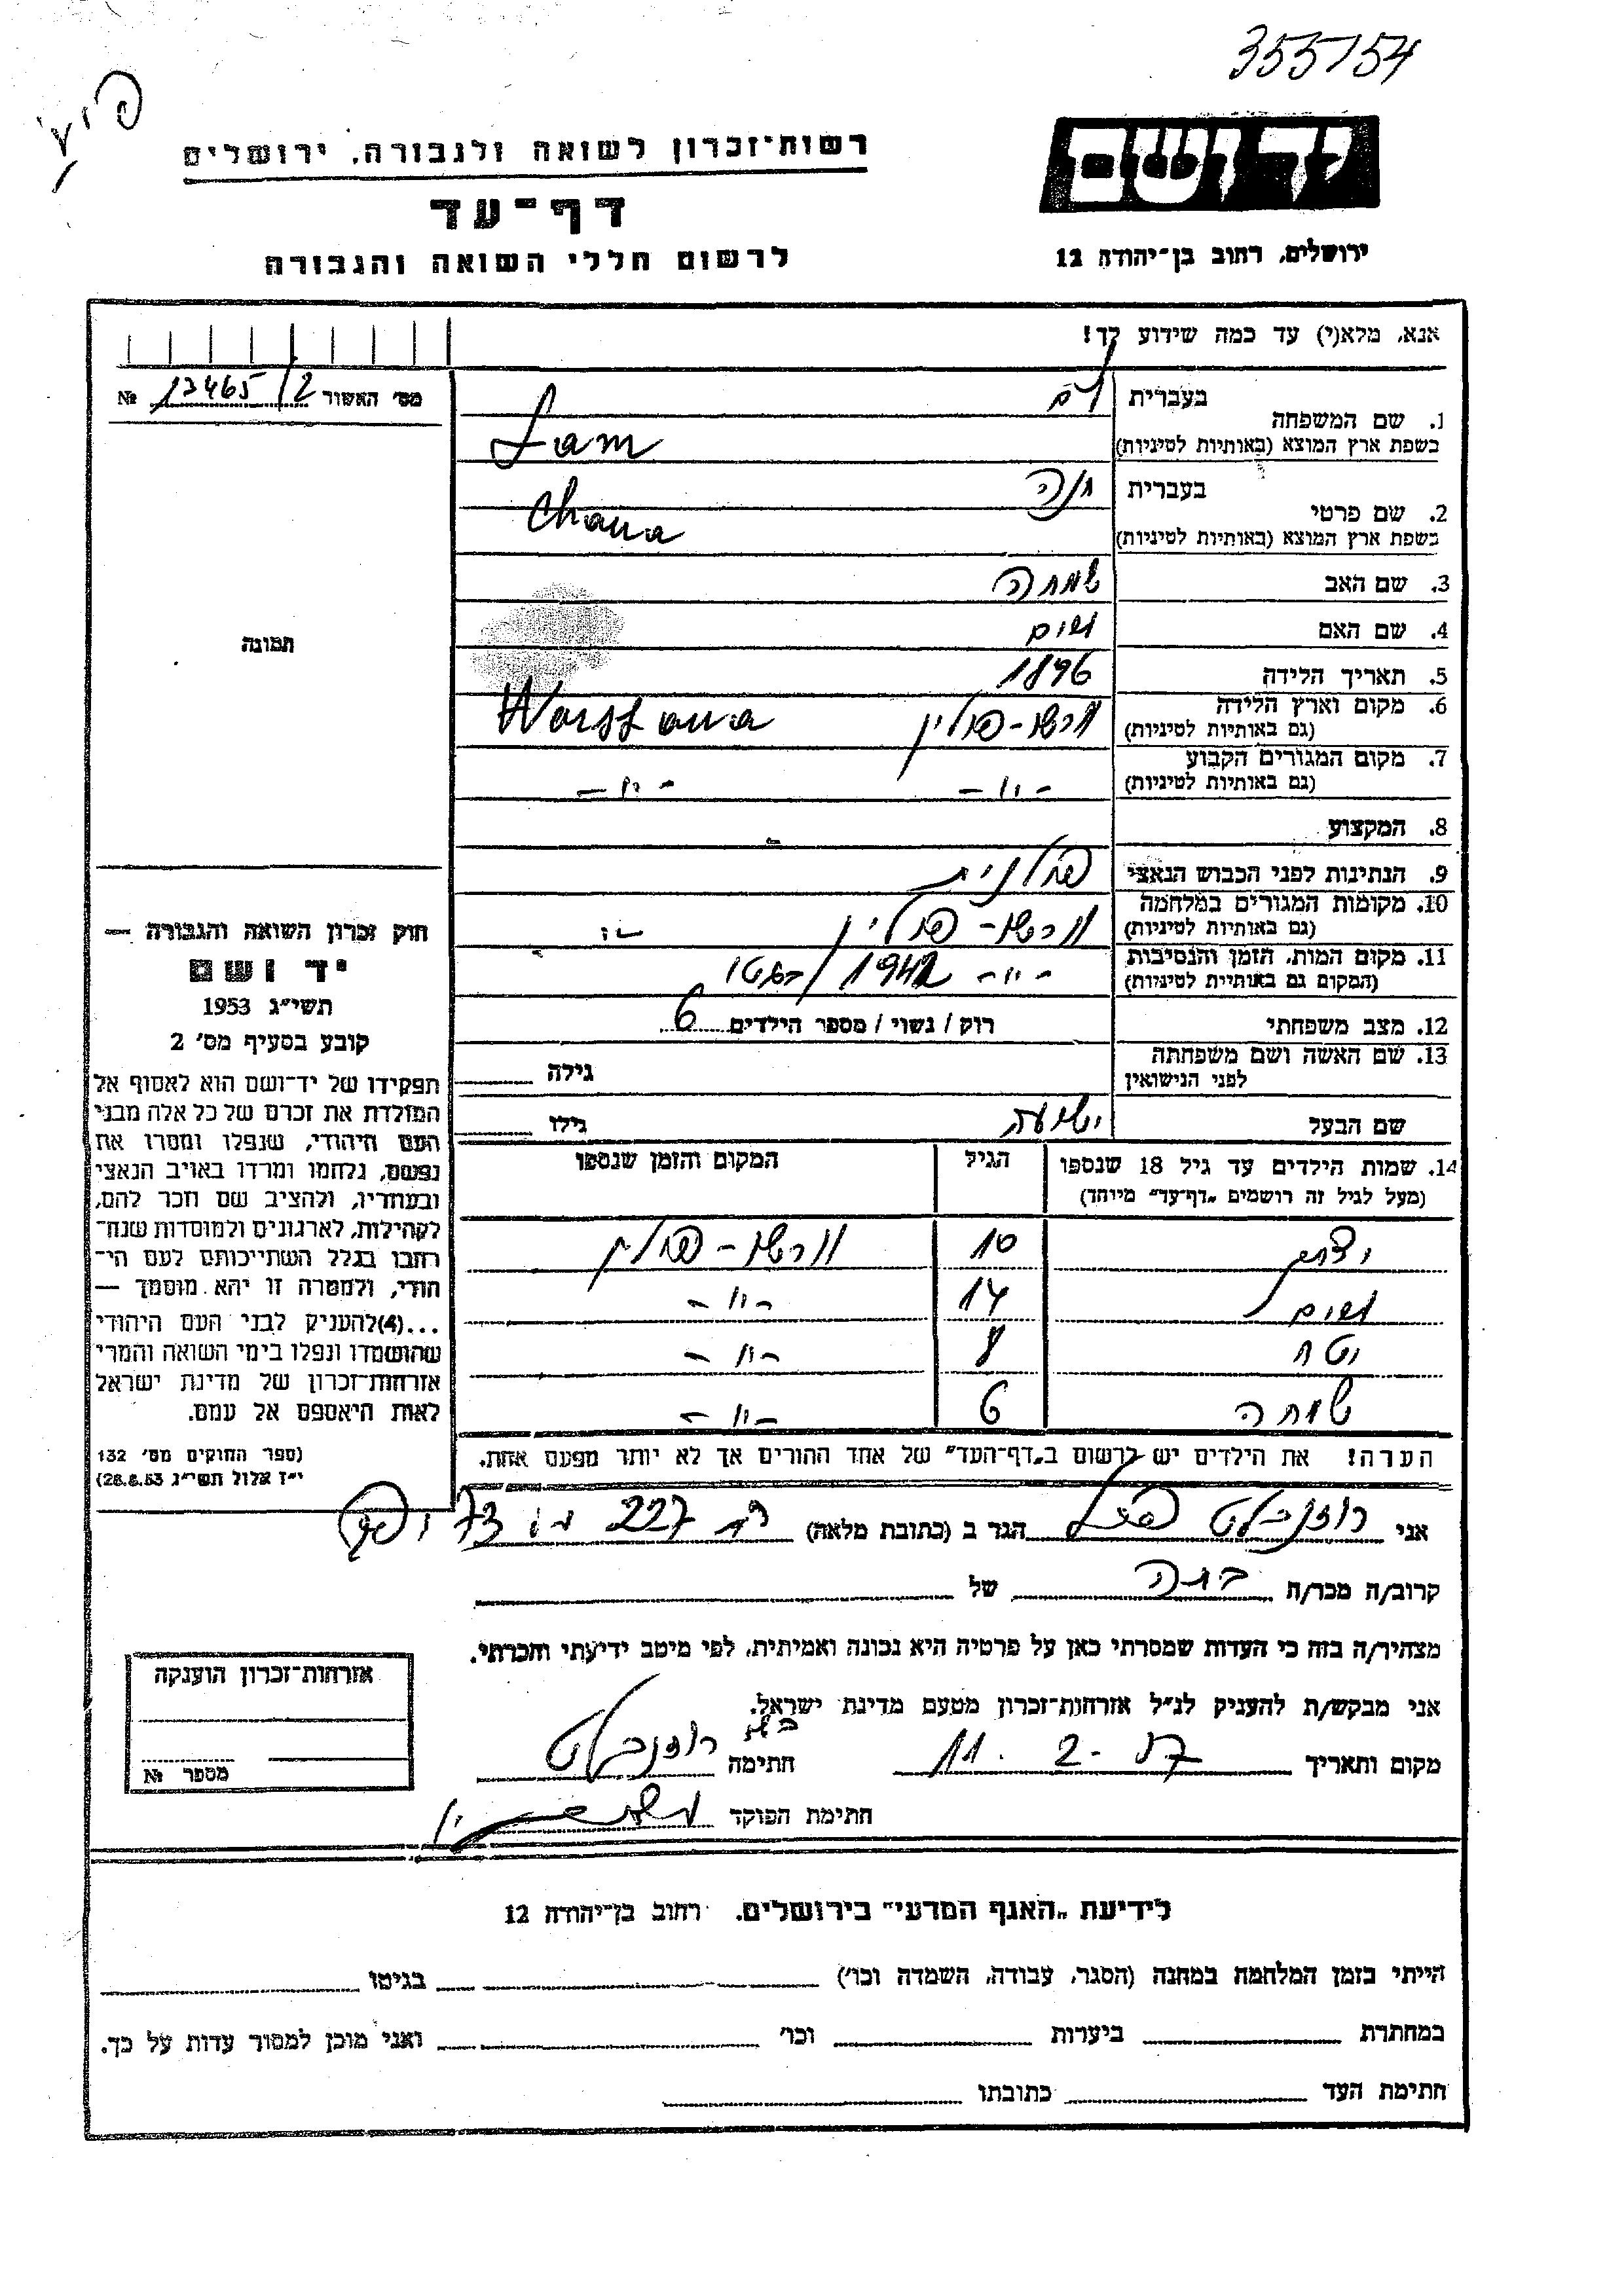 355154
רשות־זכרון לשואה ולגבורה, ירושלים
דף־עד
לרשום חללי השואה והגבורה
יד ושם
ירושלים, רחוב בן־יהודה 12
אנא, מלא(י) עד כמה שידוע לך!
מס' האשור 13465/2 №
1. שם המשפחה בעברית לם
בשפת ארץ המוצא (באותיות לטיניות) Lam
2. שם פרטי בעברית חנה
בשפת ארץ המוצא (באותיות לטיניות) Chana
3. שם האב שמחה
4. שם האם
5. תאריך הלידה 1896
6. מקום וארץ הלידה (גם באותיות לטיניות) ורשו - פולין Warszawa
7. מקום המגורים הקבוע (גם באותיות לטיניות) -"- -"-
8. המקצוע -
9. הנתינות לפני הכבוש הנאצי פולנית
10. מקומות המגורים במלחמה (גם באותיות לטיניות) ורשו - פולין
11. מקום המות, הזמן והנסיבות (המקום גם באותיית לטיניות) -"- 1942 / בגטו
12. מצב משפחתי רוק / נשוי / מספר הילדים 6
13. שם האשה ושם משפחתה לפני הנישואין גילה
שם הבעל ישעיה גילו
14. שמות הילדים עד גיל 18 שנספו (מעל לגיל זה רושמים „דף־עד" מיוחד) הגיל המקום והזמן שנספו
10 ורשו - פולין
14 -"-
8 -"-
שמחה 6 -"-
הערה! את הילדים יש לרשום ב„דף־העד" של אחד ההורים אך לא יותר מפעם אחת.
תמונה
חוק זכרון השואה והגבורה —
יד ושם
תשי"ג 1953
קובע בסעיף מס' 2
תפקידו של יד־ושם הוא לאסוף אל
המולדת את זכרם של כל אלה מבני
העם היהודי, שנפלו ומסרו את
נפשם, נלחמו ומרדו באויב הנאצי
ובעוזריו, ולהציב שם וזכר להם,
לקהילות, לארגונים ולמוסדות שנח־
רבו בגלל השתייכותם לעם הי־
הודי, ולמטרה זו יהא מוסמך —
...(4) להעניק לבני העם היהודי
שהושמדו ונפלו בימי השואה והמרי
אזרחות־זכרון של מדינת ישראל
לאות היאספם אל עמם.
(ספר החוקים מס' 132
י"ז אלול תשי"ג 28.8.53)
אני רוזנבלט הגר ב (כתובת מלאה) 227
קרוב/ה מכר/ה של
מצהיר/ה בזה כי העדות שמסרתי כאן על פרטיה היא נכונה ואמיתית, לפי מיטב ידיעתי והכרתי.
אני מבקש/ת להעניק לנ"ל אזרחות־זכרון מטעם מדינת ישראל.
מקום ותאריך 11. 2. 57 חתימה רוזנבלט
חתימת הפוקד
אזרחות־זכרון הוענקה
מספר №
לידיעת „האגף המדעי" בירושלים, רחוב בן־יהודה 12
הייתי בזמן המלחמה במחנה (הסגר, עבודה, השמדה וכו') בגיטו
במחתרת ביערות וכו' ואני מוכן למסור עדות על כך.
חתימת העד כתובתו